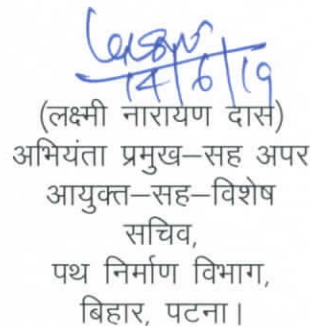 14/6/19
(लक्ष्मी नारायण दास)
अभियंता प्रमुख–सह अपर
आयुक्त–सह–विशेष
सचिव,
पथ निर्माण विभाग,
बिहार, पटना।